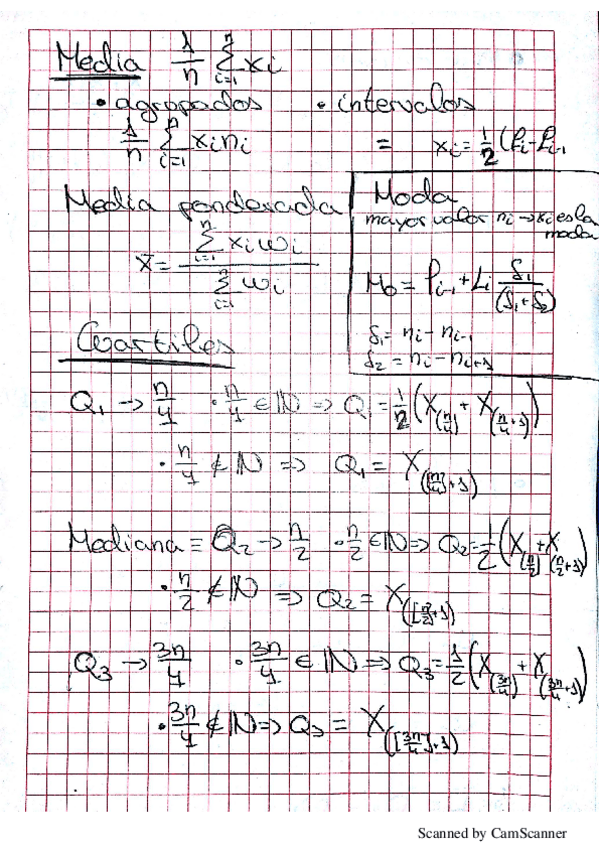 Media 1/n ∑_{i=1}^{n} xi
• agrupados • intervalos
1/n ∑_{i=1}^{n} xi ni = xi = 1/2 (Li - Li-1
Media ponderada
x̄ = ∑_{i=1}^{n} xi wi / ∑_{i=1}^{n} wi
Moda
mayor valor ni → xi es la
moda
Mo = Li-1 + Li δ1/(δ1+δ2)
δ1 = ni - ni-1
δ2 = ni - ni+1
Cuartiles
Q1 → n/4 • n/4 ∈ ℕ ⇒ Q1 = 1/2 (X(n/4) + X(n/4+1))
• n/4 ∉ ℕ ⇒ Q1 = X([n/4]+1)
Mediana = Q2 → n/2 • n/2 ∈ ℕ ⇒ Q2 = 1/2 (X(n/2) + X(n/2+1))
• n/2 ∉ ℕ ⇒ Q2 = X([n/2]+1)
Q3 → 3n/4 • 3n/4 ∈ ℕ ⇒ Q3 = 1/2 (X(3n/4) + X(3n/4+1))
• 3n/4 ∉ ℕ ⇒ Q3 = X([3n/4]+1)
Scanned by CamScanner